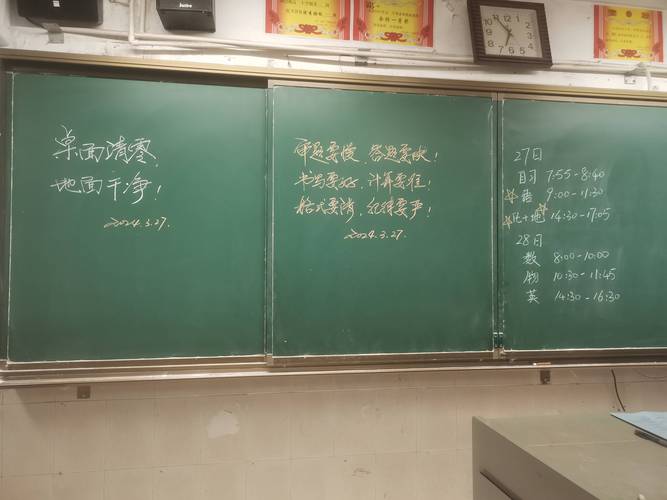 桌面清零
地面干净！
2024.3.27.
审题要慢，答题要快！
书写要好，计算要准！
格式要清，纪律要严！
2024.3.27.
27日
自习 7:55-8:40
语 9:00-11:30
化+地 14:30-17:05
28日
数 8:00-10:00
物 10:30-11:45
英 14:30-16:30